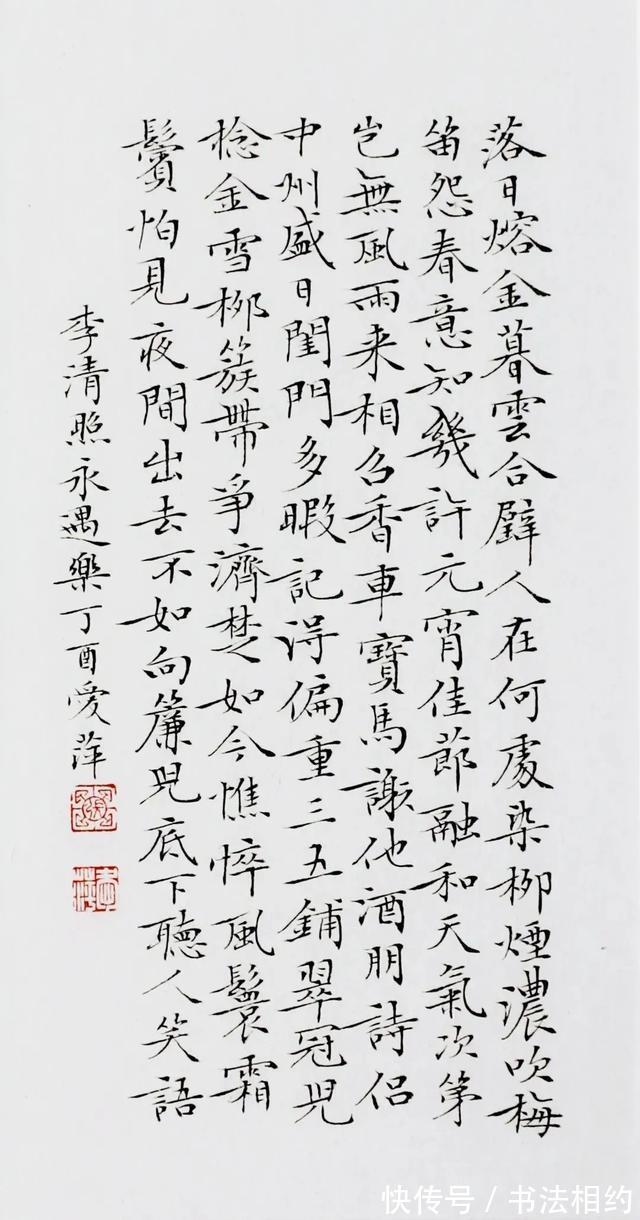 落日熔金暮雲合璧人在何處染柳煙濃吹梅
笛怨春意知幾許元宵佳節融和天氣次第
豈無風雨来相召香車寶馬謝他酒朋詩侶
中州盛日閨門多暇記得偏重三五鋪翠冠兒
捻金雪柳簇帶爭濟楚如今憔悴風鬟霜
鬢怕見夜間出去不如向簾兒底下聽人笑語
李清照永遇樂丁酉愛萍
快传号／书法相约